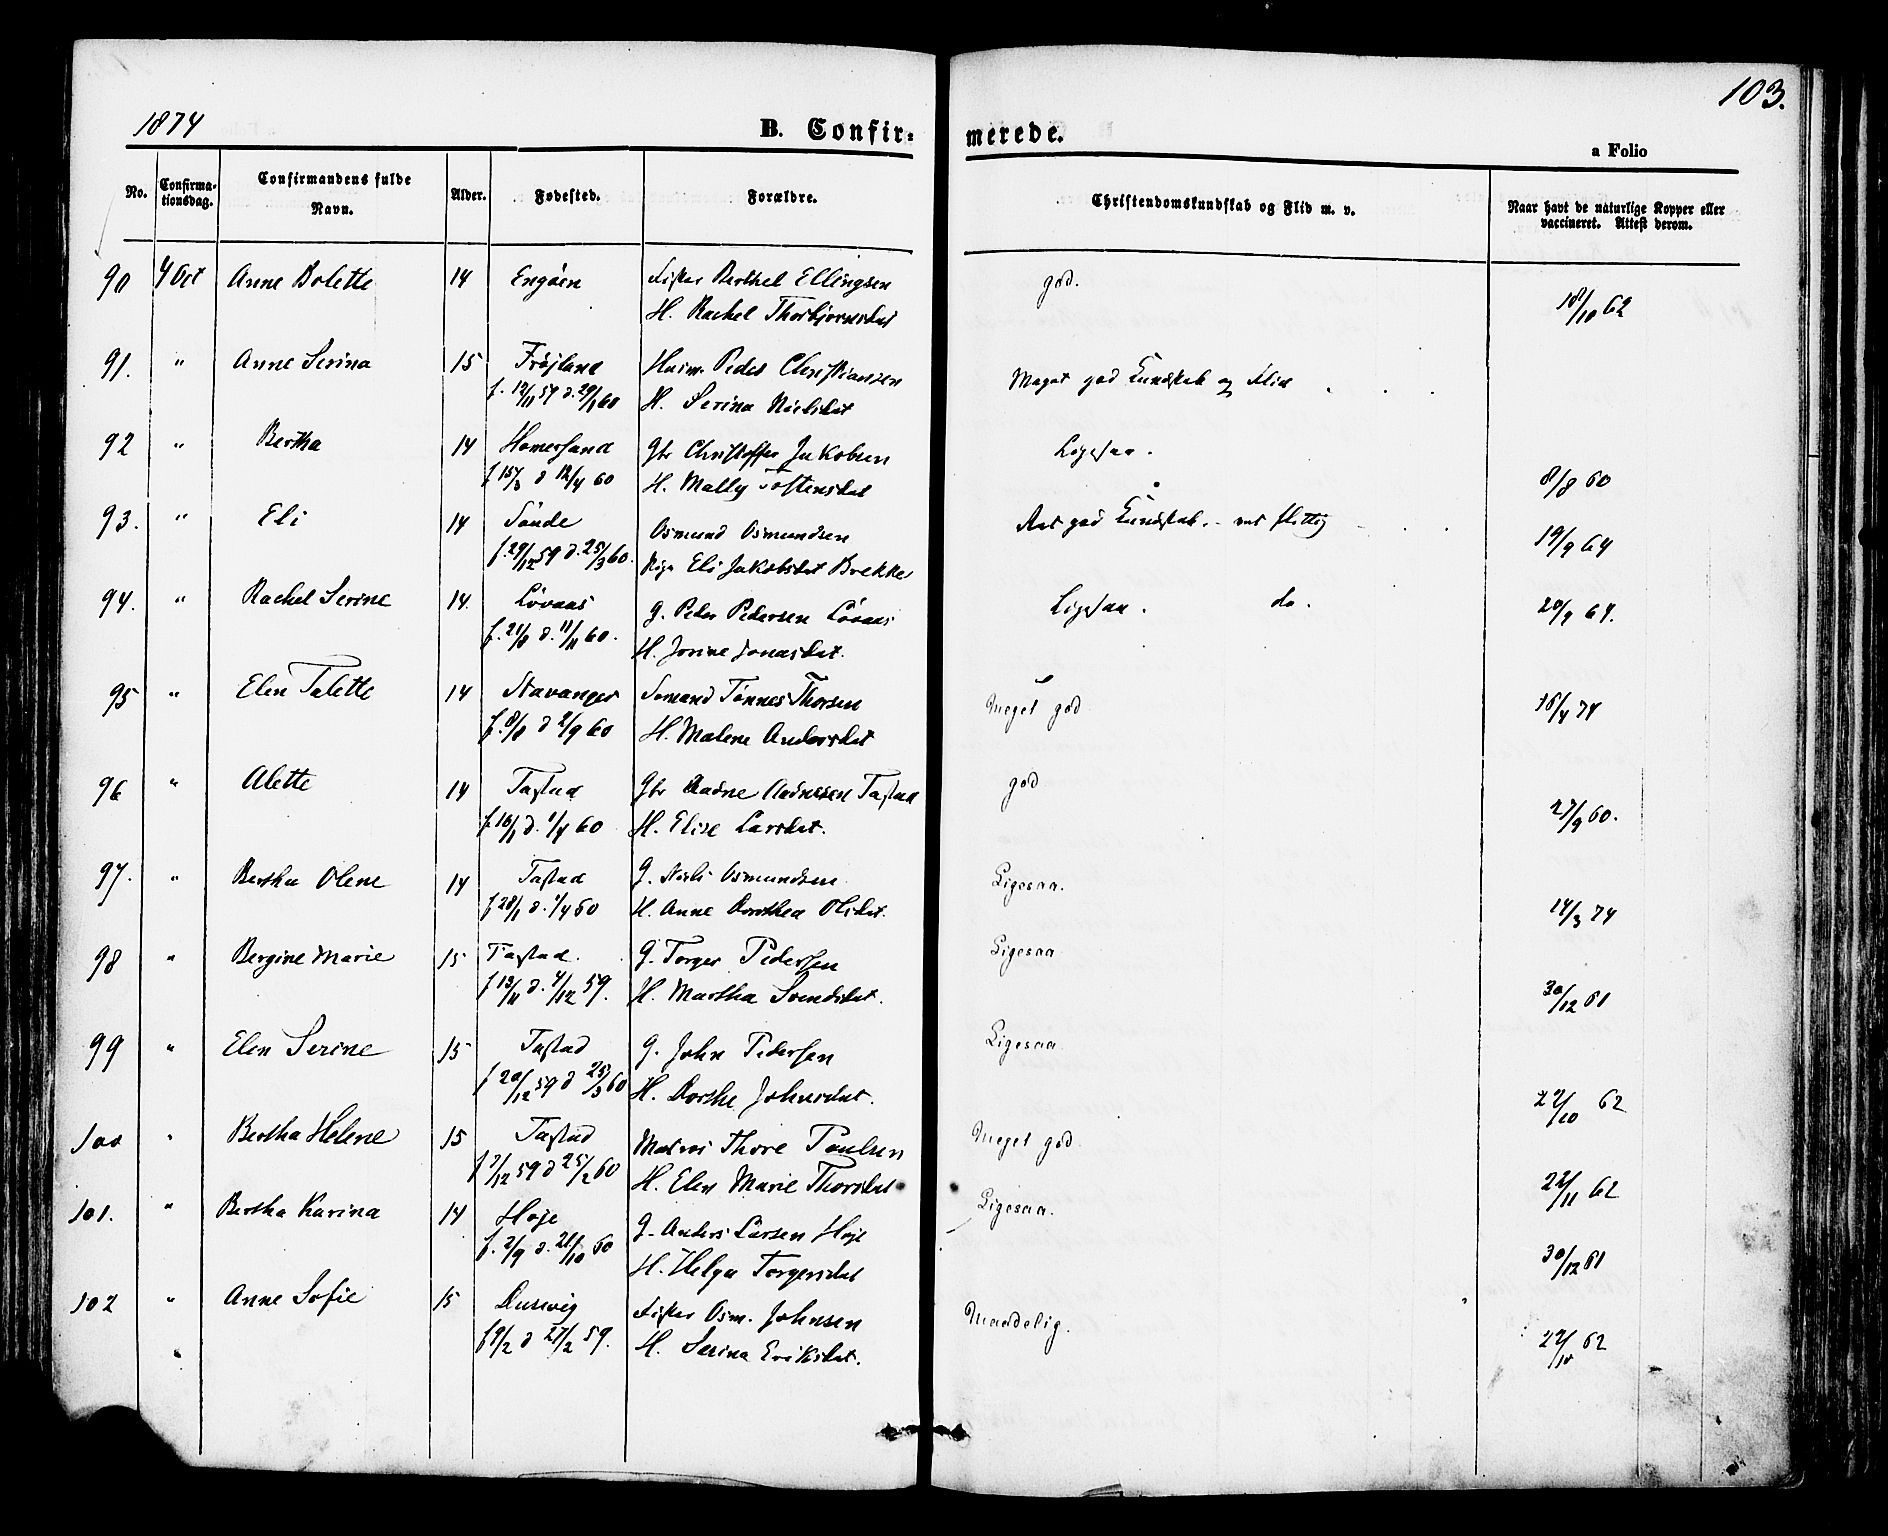 103.
1874
B. Confir=
merede.
a Folio
No.
Confirma-
tionsdag.
Confirmandens fulde
Navn.
Alder.
Fødested.
Forældre.
Christendomskundskab og Flid m. v.
Naar havt de naturlige Kopper eller
vaccineret. Attest derom.
90 4 Oct Anne Bolette 14 Engøen Fisker Berthel Ellingsen god.
H. Rachel Thorbjørnsdat 18/10 62
91. " Anne Serina 15 Frøjland Huism. Peder Christiansen Meget god Kundskab og Flid
f. 12/11 59 d. 29/1 60 H. Serina Nielsdat
92 " Bertha 14 Homersand Gbr Christoffer Jakobsen Ligesaa.
d 12/4 60 H. Mally Tostensdat 8/8 60
93. " Eli 14 Sande Osmund Osmundsen god Kundskab. flittig
f. 29/12 59 d. 25/3 60. Eli Jakobsdat Brekke 19/9 64
94. " Rachel Serine 14. Lövaas G. Peder Pedersen Lövaas Ligesaa. do.
f. 21/8 d. 11/11 60. H. Jorine Jonasdat. 20/9 64.
95 " Elen Talette 14 Stavanger Sømand Tønnes Thorsen Meget god
f. 8/8 d 2/9 60 H. Malene Andersdat 16/4 74
96 " Alette 14 Tastad Gbr Aadne Aadnesen Tastad god
f. 16/1 d. 1/4 60 H. Elise Larsdat. 27/9 60.
97. " Bertha Olene 14 Tastad G. Niels Osmundsen Ligesaa.
f 28/1 d. 1/4 60 H. Anne Dorthea Olsdat. 14/3 74
98 " Bergine Marie 15 Tastad. G. Torger Pedersen Ligesaa
f 13/11 d. 4/12 59. H. Martha Svendsdat. 30/12 61
99 " Elen Serine 15 Tastad G. John Pedersen Ligesaa
f 20/12 59 d 25/3 60 H. Dorthe Johnsdat. 22/10 62
100 " Bertha Helene 15 Tastad Matros Thore Paulsen Meget god
f 7/12 59 d 25/2 60 H. Elen Marie Thorsdat 22/11 62
101. " Bertha Karina 14 Høje G. Anders Larsen Høje Ligesaa.
f. 2/9 d. 21/10 60 H. Helga Torgersdat 30/12 61
102 " Anne Sofie 15 Dusevig Fisker Osm. Johnsen Maadelig.
f 9/2 d 27/2 59. H. Serina Eriksdat. 22/10 62
"